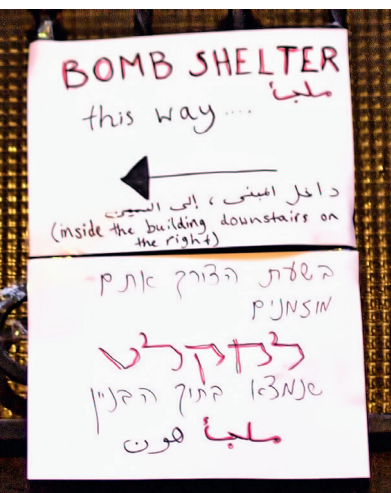 BOMB SHELTER
ملجأ
this way....
داخل المبنى ، إلى اليمين
(inside the building downstairs on
the right)
בשעת הצורך אתם
מוזמנים
למקלט
שנמצא בתוך הבניין
ملجأ هون